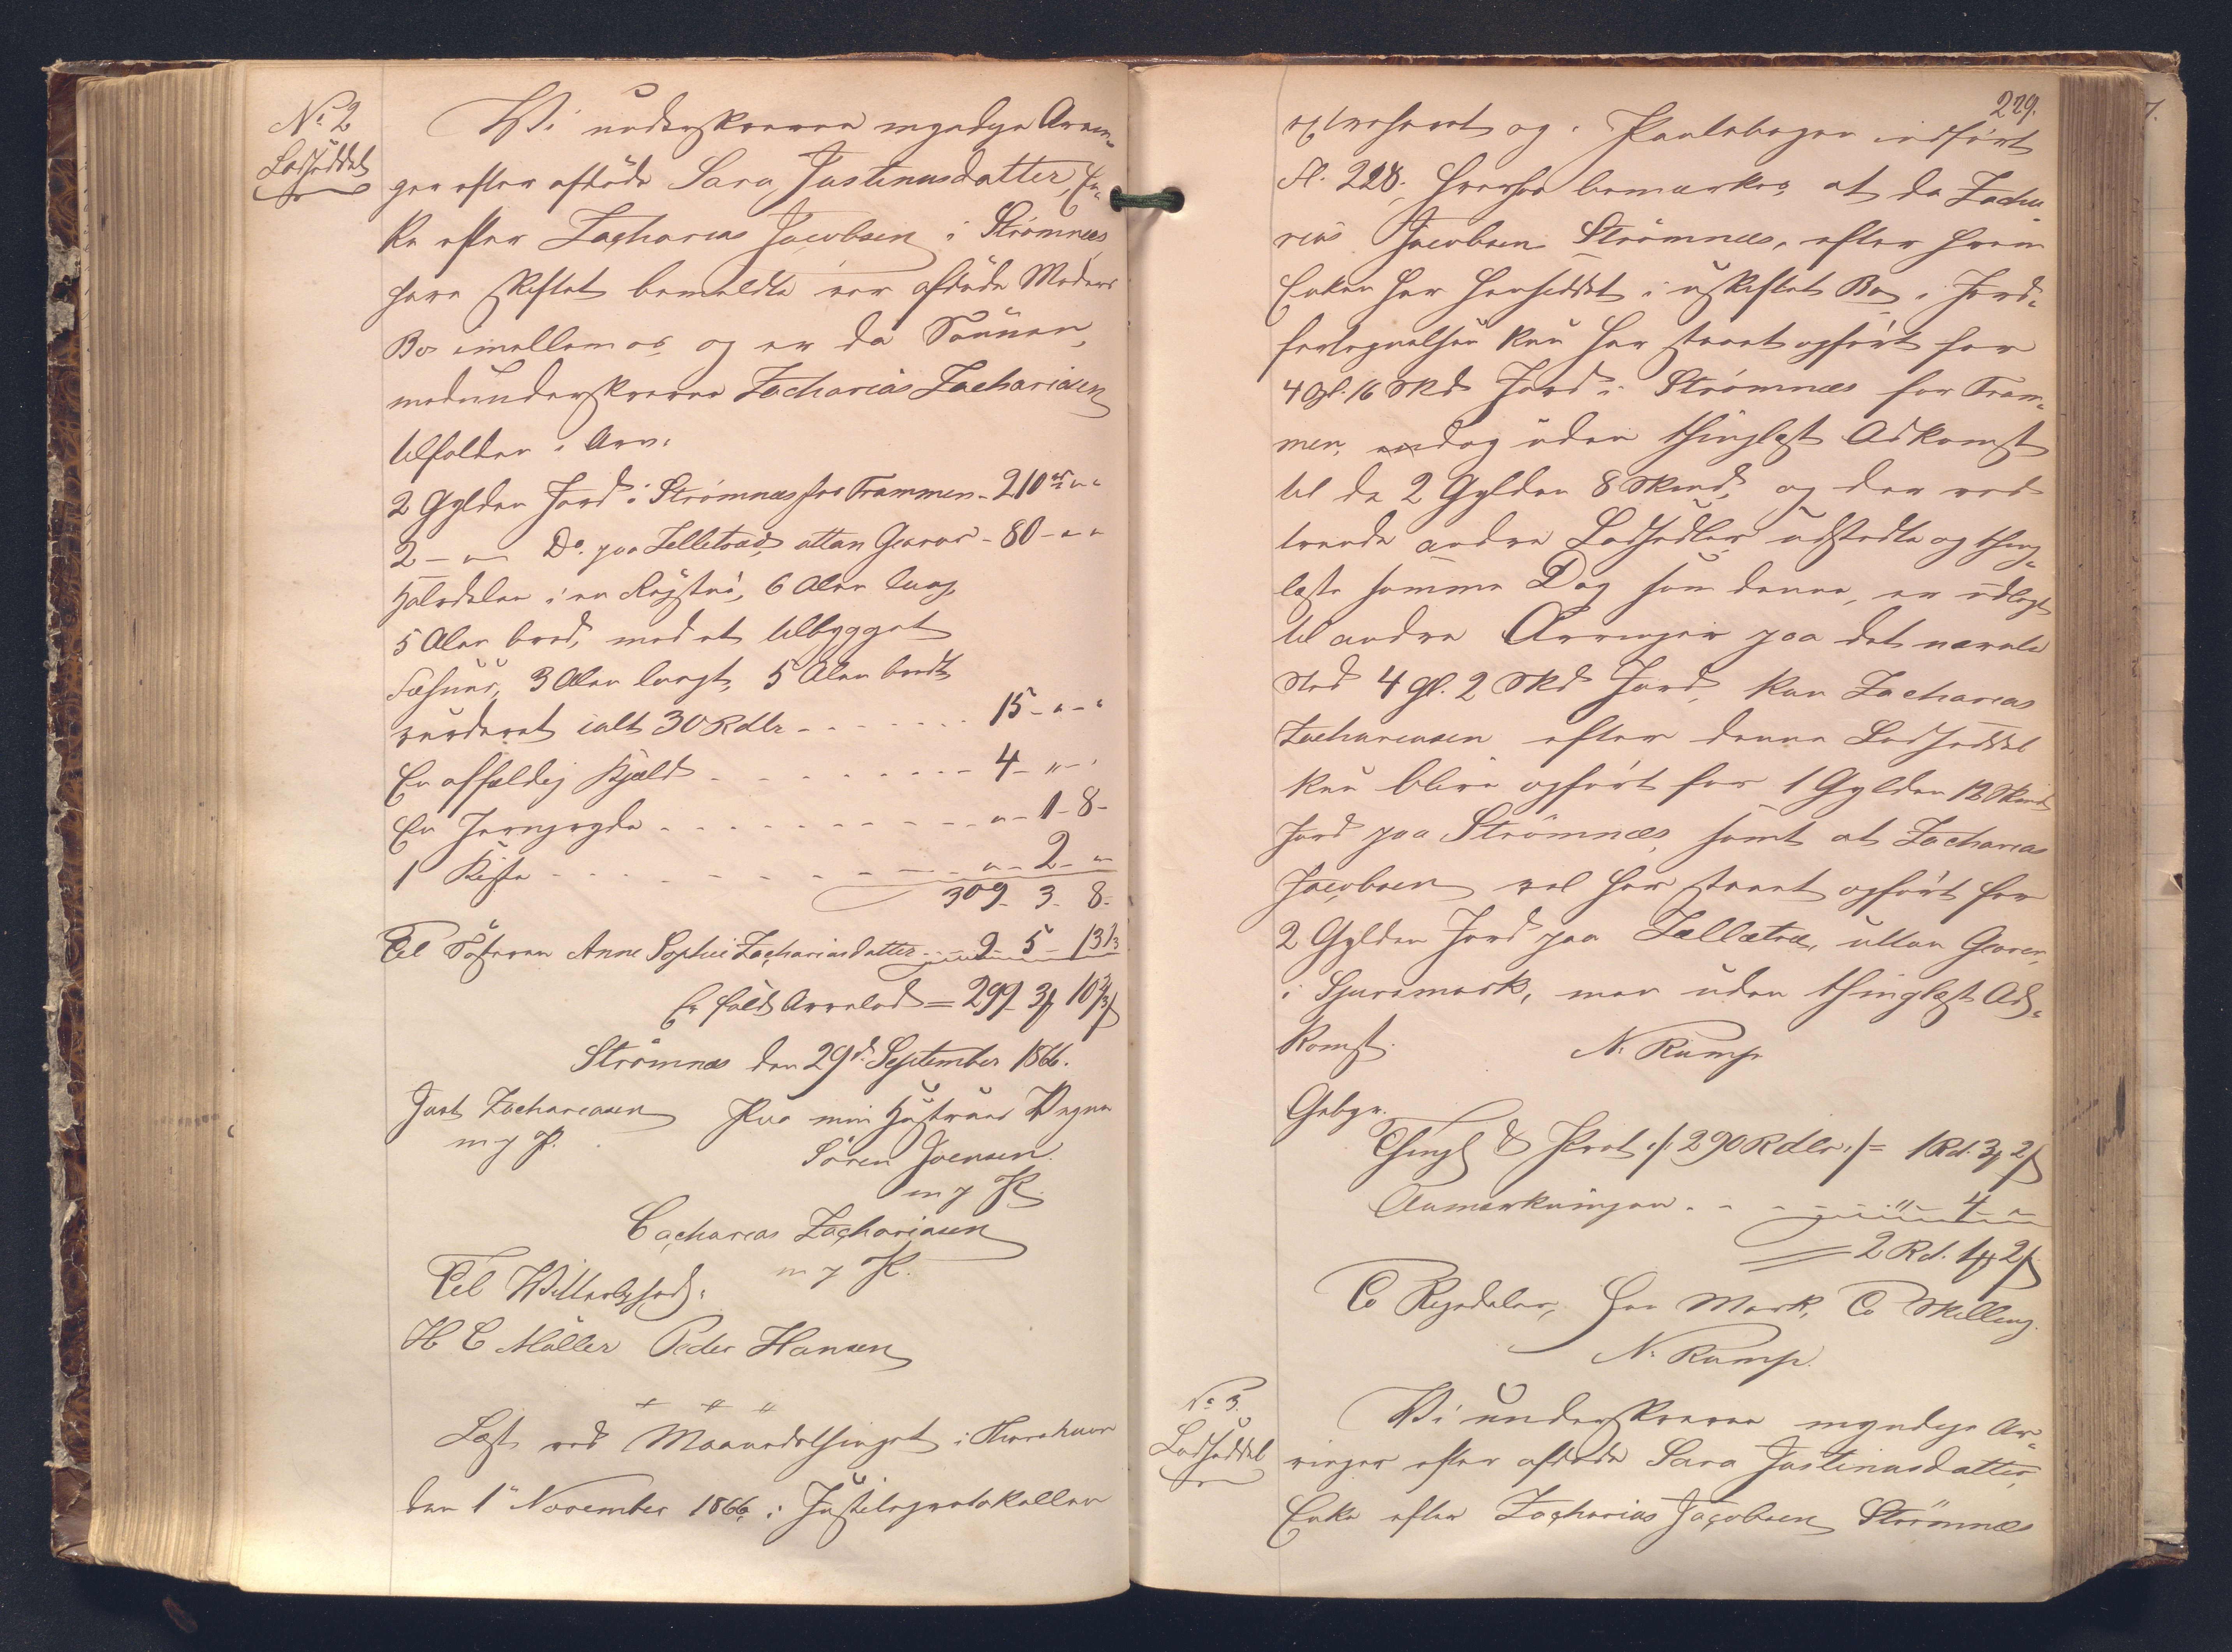 No. 2
Lodseddel
Vi underskrevne myndige Arvin-
ger efter afdøde Sara Justinusdatter, En-
ke efter Zacharias Jacobsen i Strømnæs
have skiftet bemeldte vor afdøde Moders
Bo imellem os, og er da Sønnen,
medunderskrevne Zacharias Zachariasen
tilfalden i Arv:
2 Gylden Jord i Strømnæs for Frammen - 210 rd " "
2 - " - Do. paa Selletræd, uttan Gævar - 80 - " "
Halvdelen i en Røgstue, 6 Alen lang,
5 Alen bred, med et tilbygget
Fæhuus, 3 Alen langt, 5 Alen bredt
vurderet ialt 30 Rdlr - - - 15 - " - "
En affældig Hjald - - - 4 - " - "
En Jerngryde - - - " - 1 - 8 -
1 Kiste - - - " - 2 - "
309 - 3 - 8 -
Til Søsteren Anne Sophie Zachariasdatter - 9 - 5 - 13 1/3
Er fuld Arvelod = 299 - 3 10 2/3
Strømnæs den 29d September 1866.
Just Zachariasen Paa min Hustrues Vegne
m p P. Søren Joensen
m p P.
Zacharias Zachariasen
m p P.
Til Vitterlighed:
H C Müller Peder Hansen
Læst ved Maanedsthinget i Thorshavn
den 1e November 1866, i Justitsprotokollen
229.
extraheret og i Pantebogen indført
Fl. 228, hvorhos bemærkes, at da Zacha-
rias Jacobsen Strømnæs, efter hvem
Enken har hensiddet i uskiftet Bo, i Jord-
fortegnelsen kun har staaet opført for
4 Gl. 16 Skd Jord i Strømnæs for Fram-
men, endog uden thinglæst Adkomst
til de 2 Gylden 8 Skind, og der ved
trende andre Lodsedler udstedte og thing-
læste samme Dag som denne, er udlagt
til andre Arvinger paa det nævnte
Sted 4 gl. 2 Skd Jord, kan Zacharias
Zachariasen efter denne Lodseddel
kun blive opført for 1 Gylden 12 Skind
Jord paa Strømnæs, samt at Zacharias
Jacobsen vel har staaet opført for
2 Gylden Jord paa Sælletræ, uttan Gævar,
i Sjurdmark, men uden thinglæst Ad-
komst.
N. Rump
Gebyr.
Thingl & Prot ./. 290 Rdlr ./. = 1 Rd. 3 2
Anmærkningen - - - " 4 "
= 2 Rd. 1 2
To Rigsdaler, Een Mark, To Skilling.
N. Rump.
No. 3.
Lodseddel
Vi underskrevne myndige Ar-
vinger efter afdøde Sara Justinusdatter,
Enke efter Zacharias Jacobsen Strømnæs